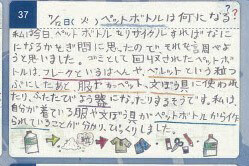 37
7/12日(火) ペットボトルは何になる??
私は今日ペットボトルをリサイクルすればなにに
なるかなぎ問に思ったのでそれを言周べよ
うと思いました。どこして回しゅうされたペットボト
ルは、フレークというはへんや、ペレットという粒つ
ぶにしたあと、服やカーペット、文ぼう具に使われ
たり、ふたたびよう器になったりするそうです。私は、
自分が着ている服や文ぼう具がペットボトルから作
られていることが分かり、びっくりしました。